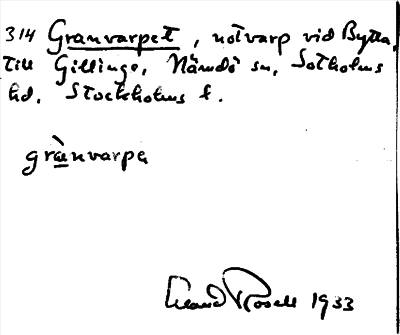 314 Granvarpet, notvarp vid Bytta,
till Gillinge, Nämdö sn, Sotholms
hd, Stockholms l.
grànvarpa
Rosell 1933